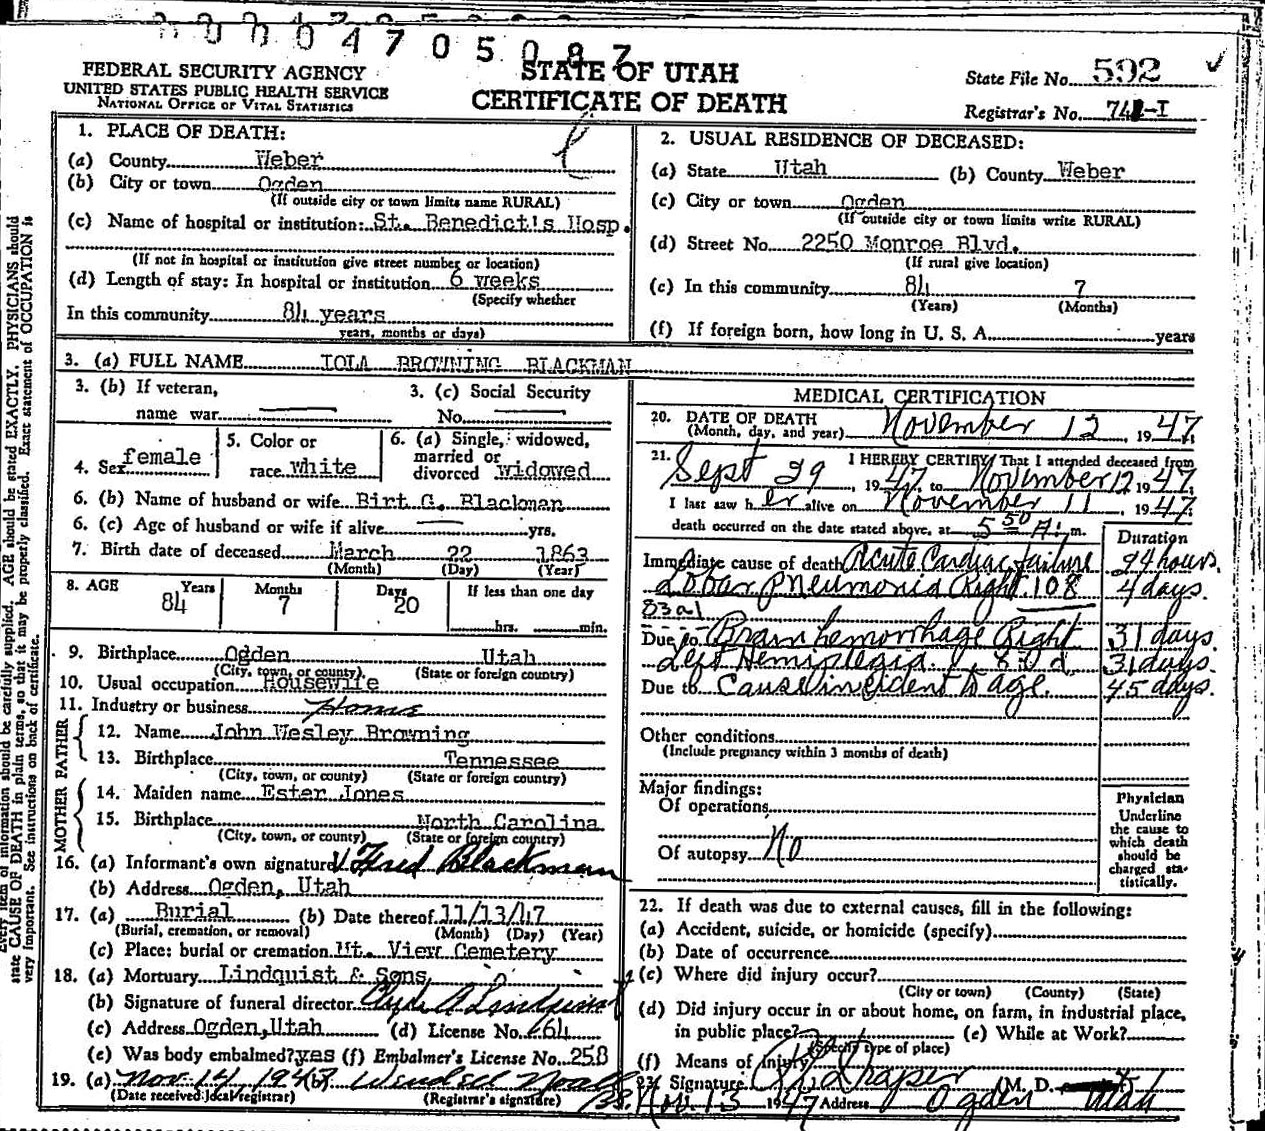 0 0 0 0 4 7 0 5 0 8 7
FEDERAL SECURITY AGENCY
UNITED STATES PUBLIC HEALTH SERVICE
NATIONAL OFFICE OF VITAL STATISTICS
STATE OF UTAH
CERTIFICATE OF DEATH
State File No. 592
Registrar's No. -I
1. PLACE OF DEATH:
(a) County Weber
(b) City or town Ogden
(If outside city or town limits name RURAL)
(c) Name of hospital or institution: St. Benedict's Hosp.
(If not in hospital or institution give street number or location)
(d) Length of stay: In hospital or institution 6 weeks
(Specify whether
In this community 84 years
years, months or days)
2. USUAL RESIDENCE OF DECEASED:
(a) State Utah (b) County Weber
(c) City or town Ogden
(If outside city or town limits write RURAL)
(d) Street No. 2250 Monroe Blvd.
(If rural give location)
(e) In this community 84 7
(Years) (Months)
(f) If foreign born, how long in U. S. A. years
3. (a) FULL NAME IOLA BROWNING BLACKMAN
3. (b) If veteran,
name war
3. (c) Social Security
No.
4. Sex female
5. Color or
race white
6. (a) Single, widowed,
married or
divorced widowed
6. (b) Name of husband or wife Birt G. Blackman
6. (c) Age of husband or wife if alive yrs.
7. Birth date of deceased March 22 1863
(Month) (Day) (Year)
8. AGE Years Months Days If less than one day
84 7 20
hrs. min.
9. Birthplace Ogden Utah
(City, town, or county) (State or foreign country)
10. Usual occupation Housewife
11. Industry or business Home
FATHER
12. Name John Wesley Browning
13. Birthplace Tennessee
(City, town, or county) (State or foreign country)
MOTHER
14. Maiden name Ester Jones
15. Birthplace North Carolina
(City, town, or county) (State or foreign country)
16. (a) Informant's own signature Fred Blackman
(b) Address Ogden, Utah
17. (a) Burial (b) Date thereof 11/13/47
(Burial, cremation, or removal) (Month) (Day) (Year)
(c) Place: burial or cremation Mt. View Cemetery
18. (a) Mortuary Lindquist & Sons
(b) Signature of funeral director Clyde A Lindquist
(c) Address Ogden, Utah (d) License No. 64
(e) Was body embalmed? yes (f) Embalmer's License No. 258
19. (a) Nov. 14, 1947 (b)
(Date received local registrar) (Registrar's signature)
MEDICAL CERTIFICATION
20. DATE OF DEATH
(Month, day, and year) November 12 1947
21. I HEREBY CERTIFY That I attended deceased from
Sept 29, 1947, to November 12 1947
I last saw her alive on November 11, 1947
death occurred on the date stated above, at 5 50 A. m.
Duration
Immediate cause of death Acute Cardiac failure 24 hours.
Lobar Pneumonia Right. 108 4 days.
83a1
Due to Brain hemorrhage Right 31 days.
Left Hemiplegia. 31 days.
Due to Cause incident to age. 45 days.
Other conditions
(Include pregnancy within 3 months of death)
Major findings:
Of operations
Of autopsy No
Physician
Underline
the cause to
which death
should be
charged sta-
tistically.
22. If death was due to external causes, fill in the following:
(a) Accident, suicide, or homicide (specify)
(b) Date of occurrence
(c) Where did injury occur?
(City or town) (County) (State)
(d) Did injury occur in or about home, on farm, in industrial place,
in public place? (e) While at Work?
(Specify type of place)
(f) Means of injury
Signature Draper (M. D.
Nov. 13 1947 Address Ogden Utah
Every item of information should be carefully supplied. AGE should be stated EXACTLY. PHYSICIANS should
state CAUSE OF DEATH in plain terms, so that it may be properly classified. Exact statement of OCCUPATION is
very important. See instructions on back of certificate.